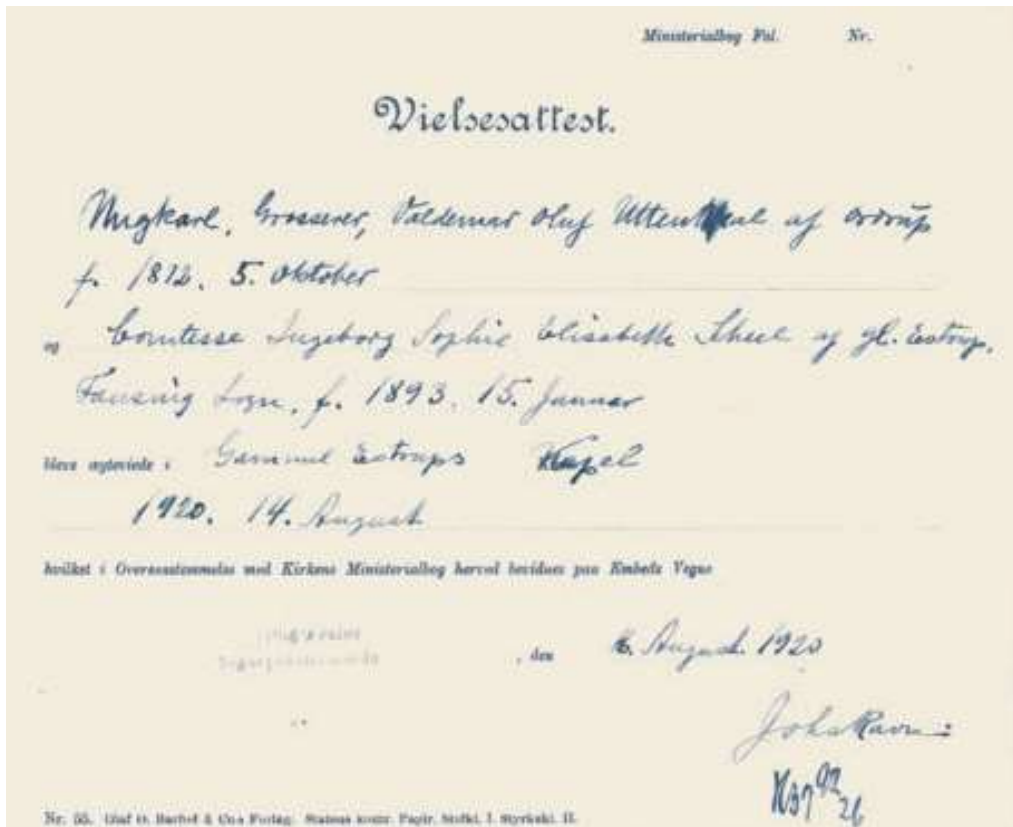 Ministerialbog Fol. Nr.
Vielsesattest.
Ungkarl, Grosserer, Valdemar Oluf Uttenthal af Ordrup
f. 1812. 5. Oktober
og Comtesse Ingeborg Sophie Elisabeth Scheel af gl. Estrup,
Fausing Sogn, f. 1893. 15. Januar
bleve ægteviede i Gammel Estrups Kapel
1920. 14. August
hvilket i Overensstemmelse med Kirkens Ministerialbog herved bevidnes paa Embeds Vegne
, den August 1920
Johs Ravn
Nr. 55. Olaf O. Barfod & Co.s Forlag. Statens kontr. Papir, Stofkl. I. Styrkekl. II.